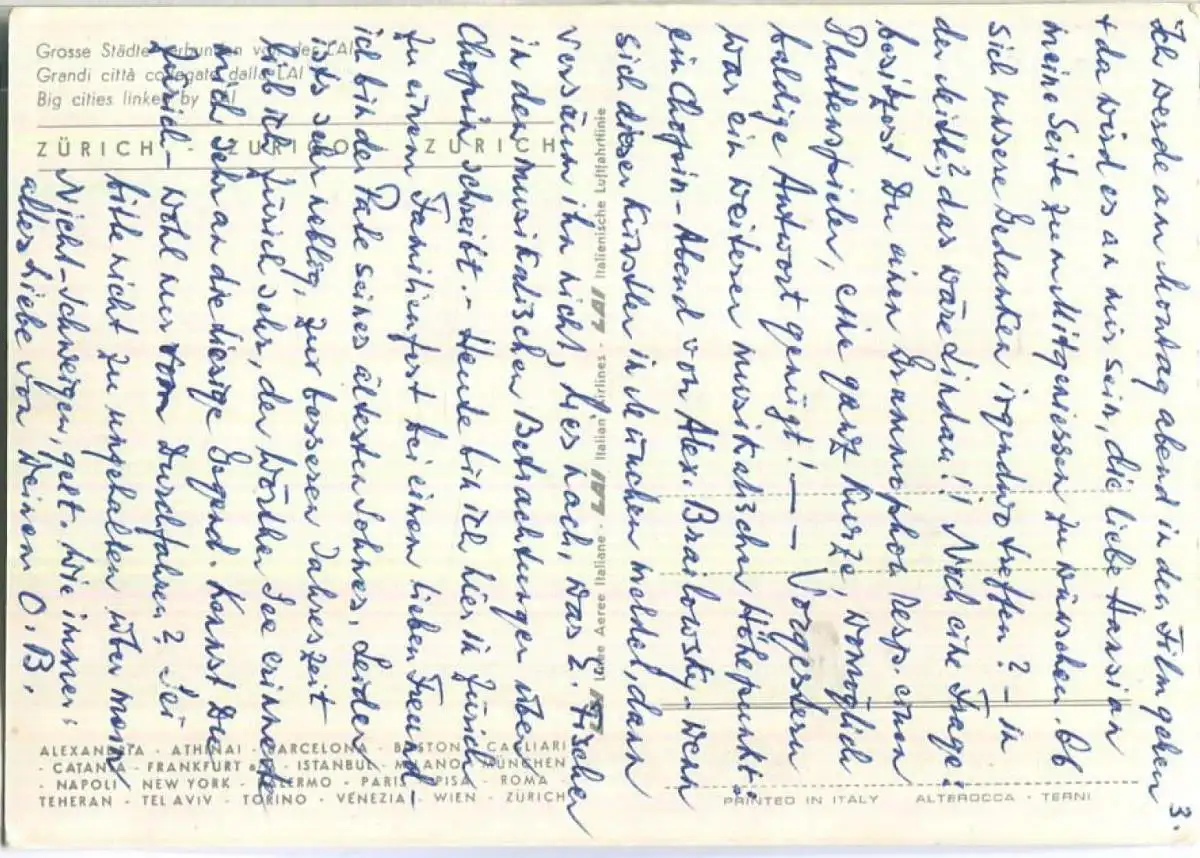 3.
Ich werde am Montag abend in den Film gehen
+ da wird es an mir sein, die liebe Hansian
meine Seite zum Mitgeniessen zu wünschen. Ob
sich unsere Gedanken irgendwo treffen? – in
der Mitte?, das wäre Lindau! ! Noch eine Frage:
besitzest Du einen Grammophon resp. einen
Plattenspieler, eine ganz kurze, womöglich
baldige Antwort genügt! — — Vorgestern
war ein weiterer musikalischer Höhepunkt:
ein Chopin-Abend von Alex. Brailowsky – wenn
sich dieser Künstler in München meldet, dann
versäum ihn nicht, lies nach, was E. Fischer
in den musikalischen Betrachtungen über
Chopin schreibt. – Heute bin ich hier in Zürich
zu einem Familienfest bei einem lieben Freund –
ich bin der Pate seines ältesten Sohnes. Leider
ists sehr neblig, zur besseren Jahreszeit
lieb ich Zürich sehr, der Wörther See erinnerte
mich sehr an die diesige Gegend. Kennst Du
Zürich – wohl nur vom Durchfahren? Sei
bitte nicht zu ungehalten über mein
Nicht-Schweigen, gelt. Wie immer:
alles Liebe von Deinem O. B.
Grosse Städte verbunden von der LAI
Grandi città collegate dalla LAI
Big cities linked by LAI
ZÜRICH · ZURIGO · ZURICH
LAI Linee Aeree Italiane · LAI Italian Airlines · LAI Italienische Luftfahrtlinie
ALEXANDRIA · ATHINAI · BARCELONA · BOSTON · CAGLIARI
· CATANIA · FRANKFURT a/M · ISTANBUL · MILANO · MÜNCHEN
· NAPOLI · NEW YORK · PALERMO · PARIS · PISA · ROMA ·
TEHERAN · TEL AVIV · TORINO · VENEZIA · WIEN · ZÜRICH
PRINTED IN ITALY ALTEROCCA - TERNI